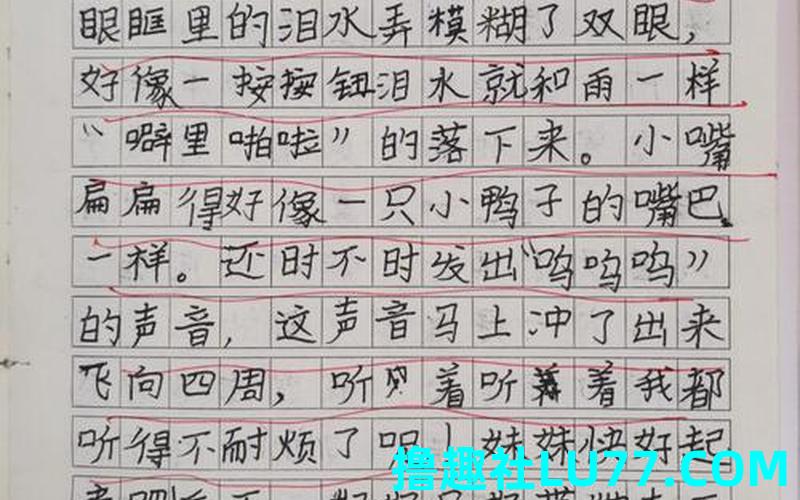 眼眶里的泪水弄模糊了双眼，
好像一按按钮泪水就和雨一样
“噼里啪啦”的落下来。小嘴
扁扁得好像一只小鸭子的嘴巴
一样。还时不时发出“呜呜呜”
的声音，这声音马上冲了出来
飞向四周，听着听着我都
听得不耐烦了呢！妹妹快好起
撸趣社LU77.COM